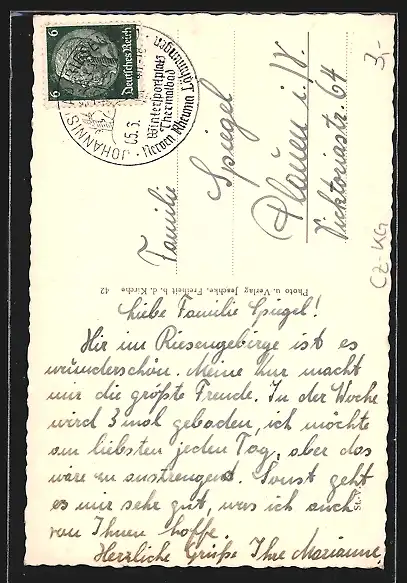 Liebe Familie Spiegel!
Hir im Riesengebirge ist es
wunderschön. Meine Kur macht
mir die größte Freude. In der Woche
wird 3 mal gebaden, ich möchte
am liebsten jeden Tag, aber das
wäre zu anstrengend. Sonst geht
es mir sehr gut, was ich auch
von Ihnen hoffe.
Herzliche Grüße Ihre Marianne.
Familie
Spiegel
Plauen i./V.
Vicktoriastr. 64
Photo u. Verlag Jeschke, Freiheit b. d. Kirche 42
Deutsches Reich
6
6
JOHANNISBAD
05.3.
Wintersportplatz
Thermalbad
Nerven Rheuma Lähmungen
3,-
CZ-KG